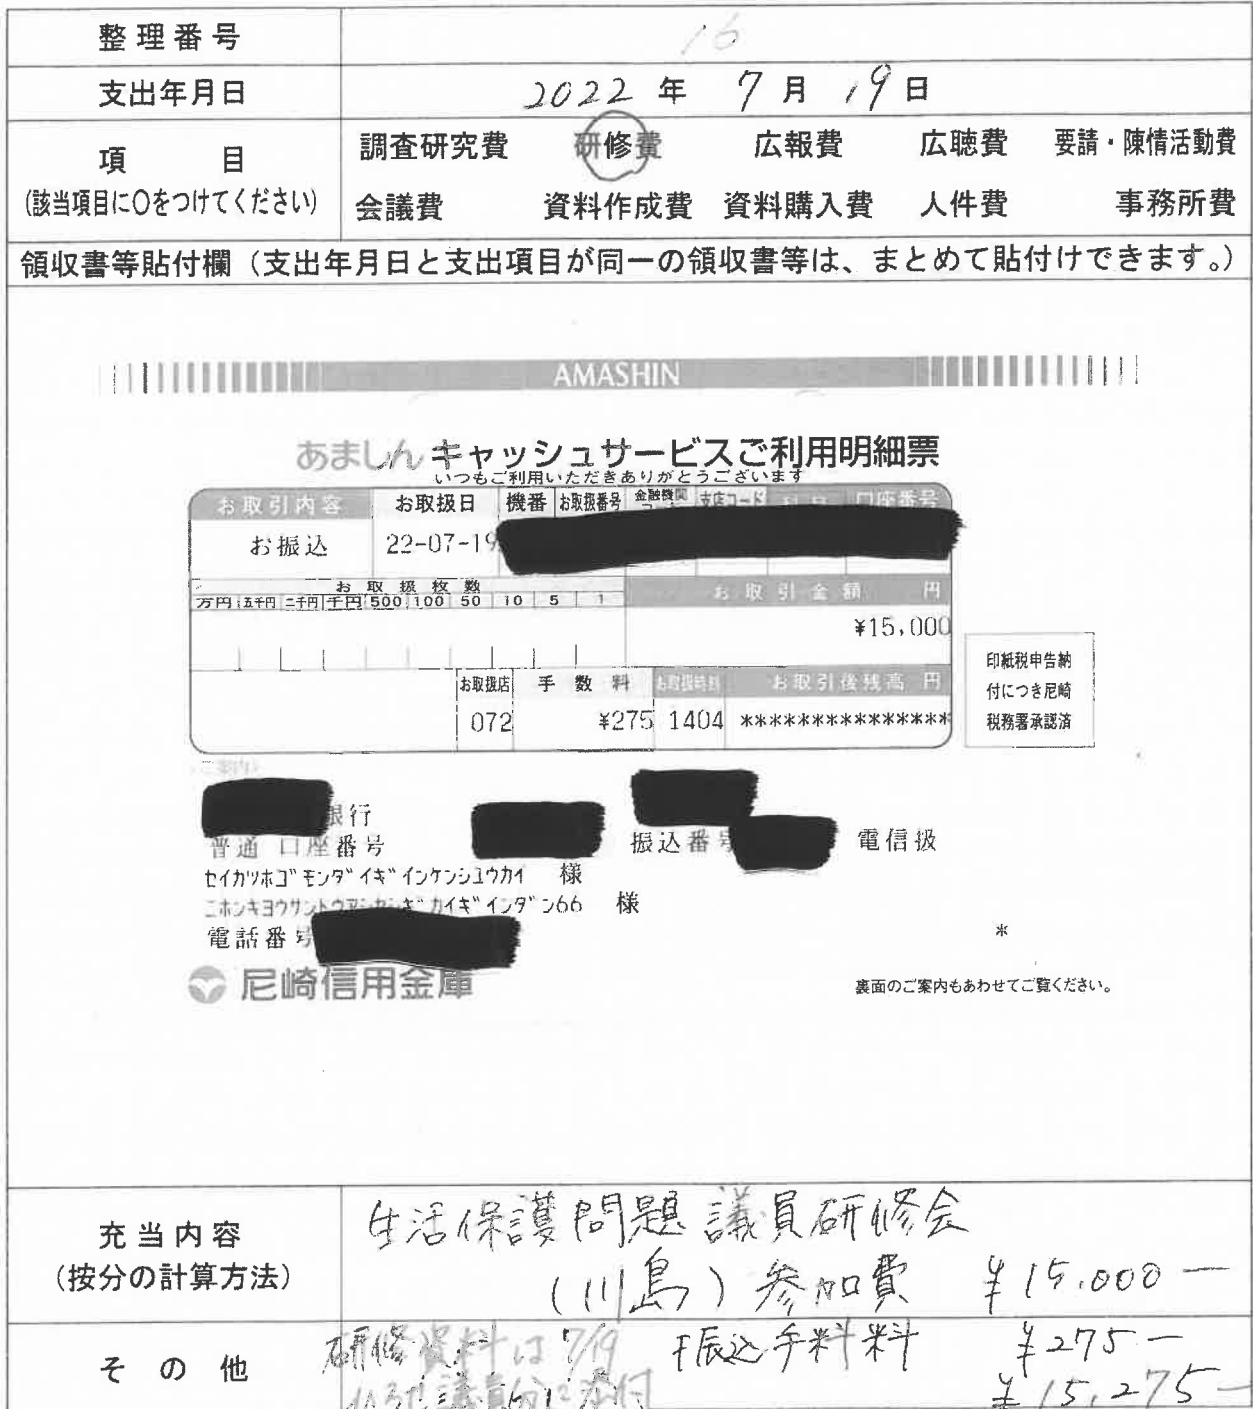 整理番号 16
支出年月日 2022 年 7 月 19 日
項 目
(該当項目に〇をつけてください)
調査研究費 研修費 広報費 広聴費 要請・陳情活動費
会議費 資料作成費 資料購入費 人件費 事務所費
領収書等貼付欄（支出年月日と支出項目が同一の領収書等は、まとめて貼付けできます。）
AMASHIN
あましん キャッシュサービスご利用明細票
いつもご利用いただきありがとうございます
お取引内容 お取扱日 機番 お取扱番号 金融機関コード 支店コード 科目 口座番号
お振込 22-07-19
お取扱枚数
万円 五千円 二千円 千円 500 100 50 10 5 1
お取引金額 円
¥15,000
お取扱店 手数料 お取扱時刻 お取引後残高 円
072 ¥275 1404 ***************
印紙税申告納
付につき尼崎
税務署承認済
(ご案内)
銀行
普通 口座番号 振込番号 電信扱
セイカツホゴモンダイギインケンシュウカイ 様
ニホンキヨウサントウアマガサキシギカイギインダン66 様
電話番号
*
尼崎信用金庫
裏面のご案内もあわせてご覧ください。
充当内容
(按分の計算方法)
生活保護問題議員研修会
(川島) 参加費 ¥15,000 ー
その他
研修資料は 7/19 振込手料料 ¥275 ー
議員分に添付 ¥15,275 ー